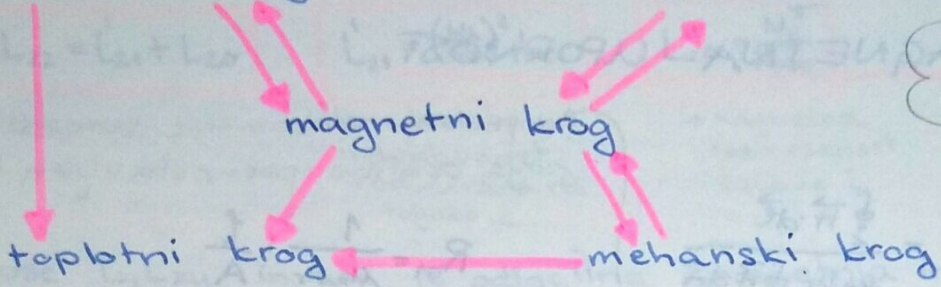 magnetni krog
toplotni krog mehanski krog